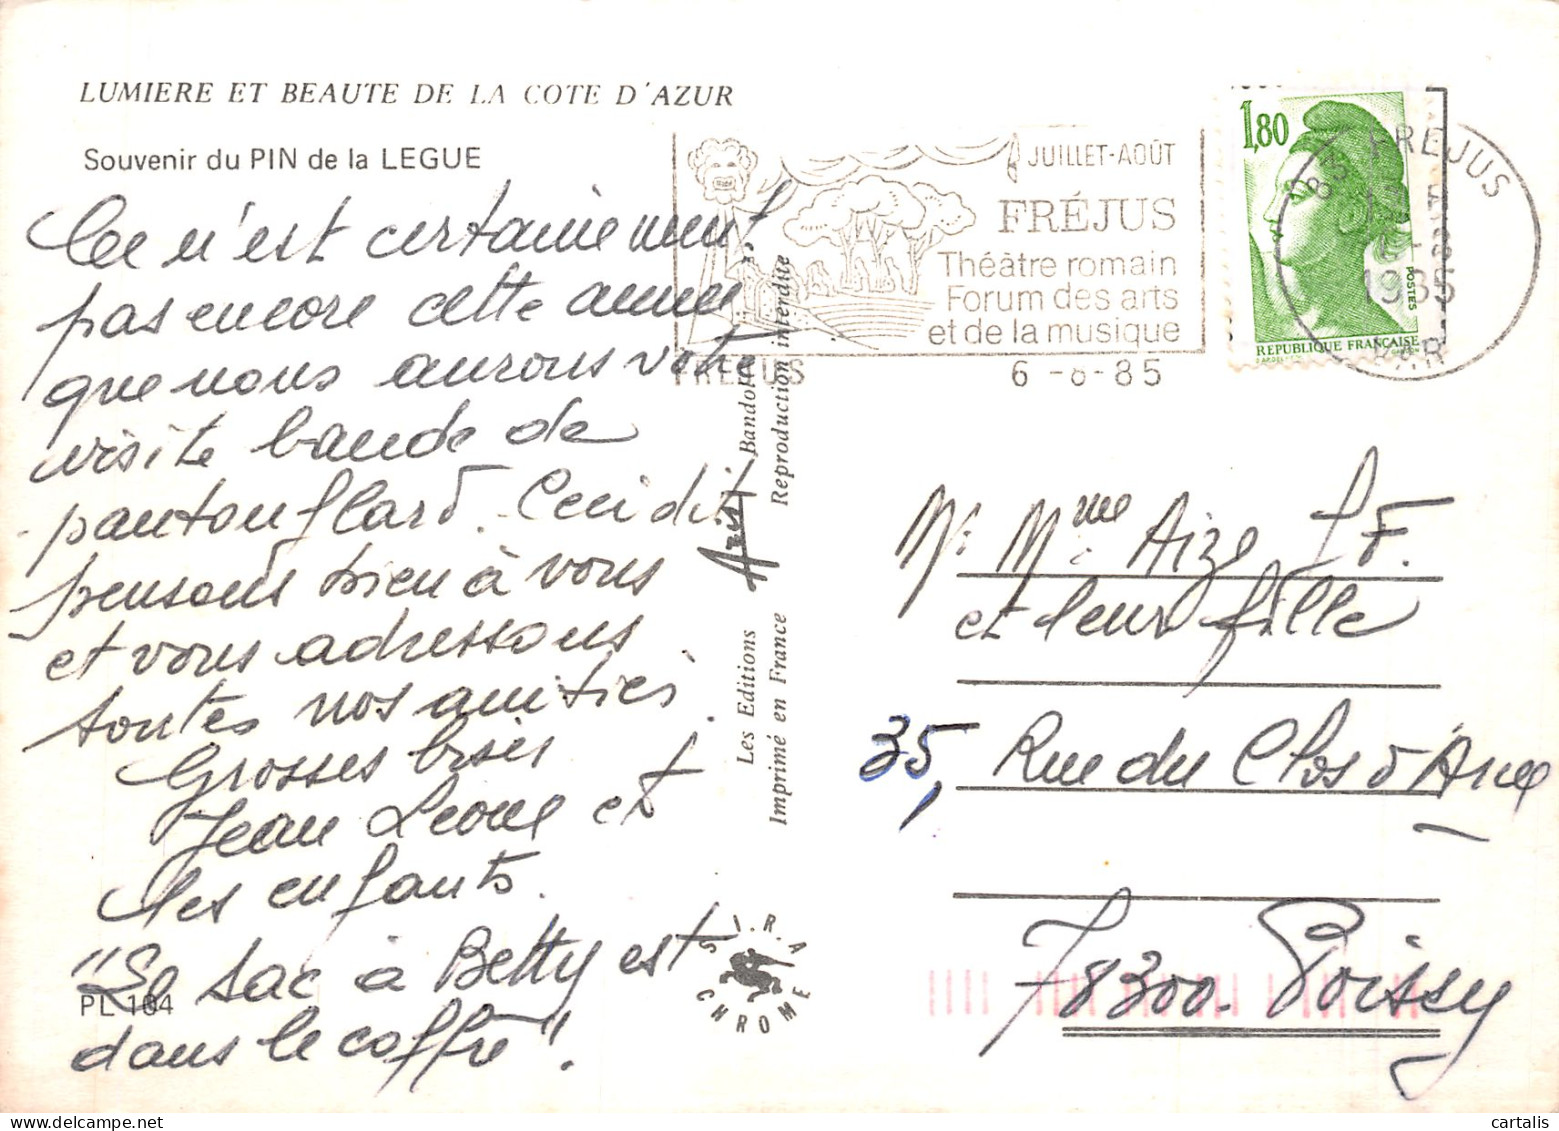 LUMIERE ET BEAUTE DE LA COTE D'AZUR
Souvenir du PIN de la LEGUE
Ce n'est certainement
pas encore cette année
que nous aurons votre
visite bande de
pantouflard. Ceci dit
pensons bien à vous
et vous adressons
toutes nos amitiés.
Grosses bises
Jean Leone et
les enfants.
"Le sac à Betty est
dans le coffre".
PL 104
JUILLET-AOÛT
FRÉJUS
Théâtre romain
Forum des arts
et de la musique
FREJUS 6-8-85
1,80
POSTES
REPUBLIQUE FRANÇAISE
83 FREJUS
1985
VAR
Les Editions Aris Bandol
Imprimé en France Reproduction interdite
S.I.R.A
CHROME
M. Mme Aize J F.
et leur fille
35, Rue du Clos d'Arcy
78300. Poissy
cartalis